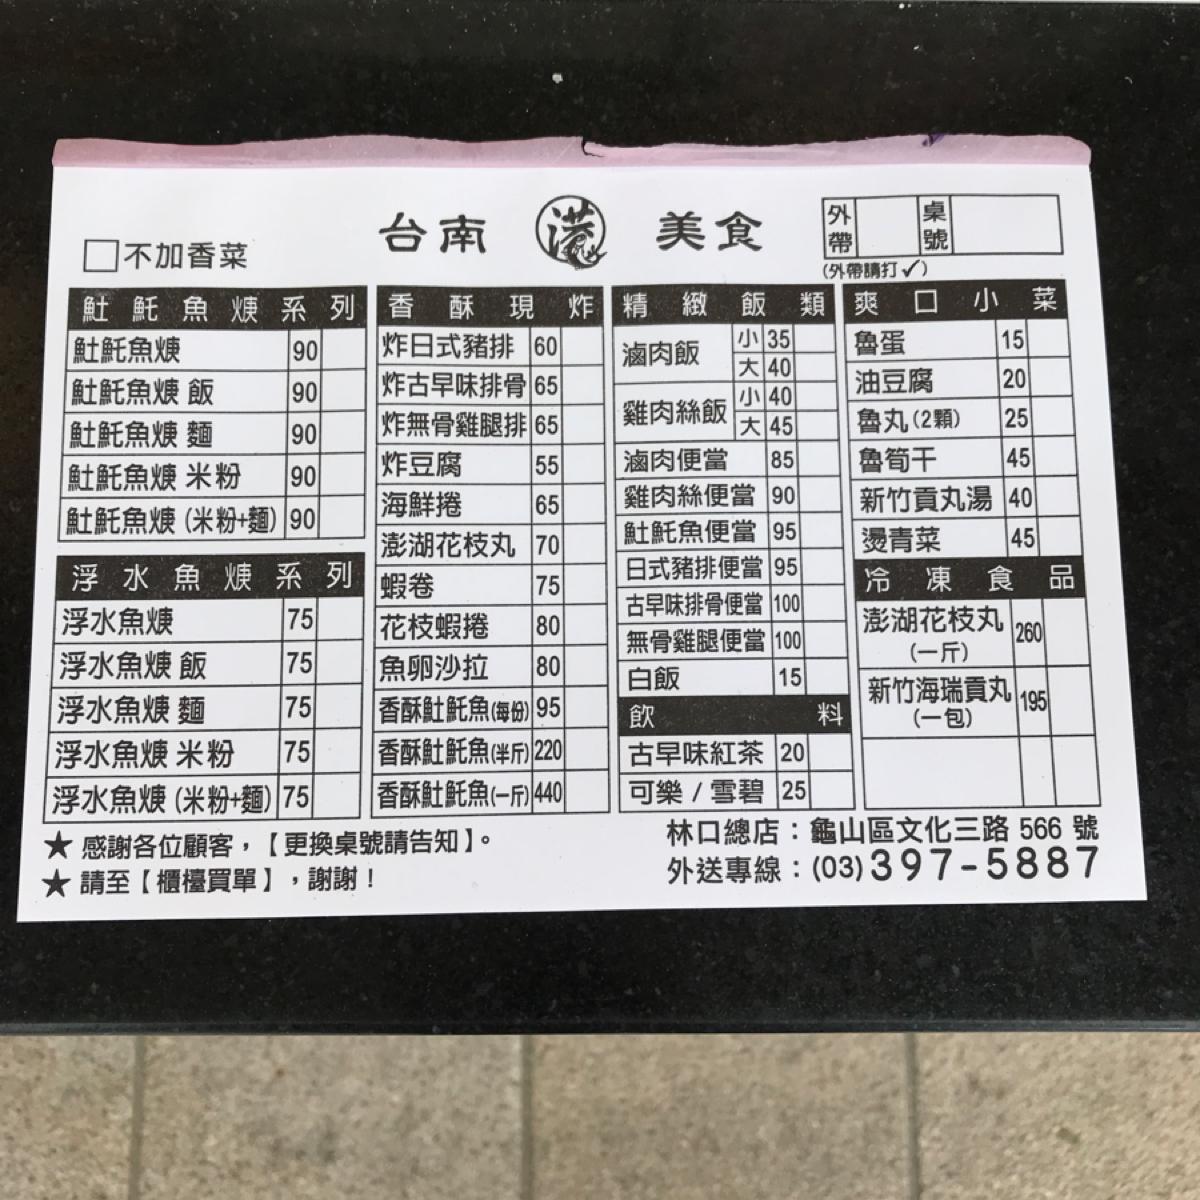 台南 港 美食
□不加香菜
外帶 桌號
(外帶請打✓)
𩵚魠魚焿系列
𩵚魠魚焿 90
𩵚魠魚焿 飯 90
𩵚魠魚焿 麵 90
𩵚魠魚焿 米粉 90
𩵚魠魚焿 (米粉+麵) 90
浮水魚焿系列
浮水魚焿 75
浮水魚焿 飯 75
浮水魚焿 麵 75
浮水魚焿 米粉 75
浮水魚焿 (米粉+麵) 75
香酥現炸
炸日式豬排 60
炸古早味排骨 65
炸無骨雞腿排 65
炸豆腐 55
海鮮捲 65
澎湖花枝丸 70
蝦卷 75
花枝蝦捲 80
魚卵沙拉 80
香酥𩵚魠魚(每份) 95
香酥𩵚魠魚(半斤) 220
香酥𩵚魠魚(一斤) 440
精緻飯類
滷肉飯 小 35
大 40
雞肉絲飯 小 40
大 45
滷肉便當 85
雞肉絲便當 90
𩵚魠魚便當 95
日式豬排便當 95
古早味排骨便當 100
無骨雞腿便當 100
白飯 15
飲料
古早味紅茶 20
可樂 / 雪碧 25
爽口小菜
魯蛋 15
油豆腐 20
魯丸(2顆) 25
魯筍干 45
新竹貢丸湯 40
燙青菜 45
冷凍食品
澎湖花枝丸 260
(一斤)
新竹海瑞貢丸 195
(一包)
★ 感謝各位顧客，【更換桌號請告知】。
★ 請至【櫃檯買單】，謝謝！
林口總店：龜山區文化三路 566 號
外送專線：(03)397-5887